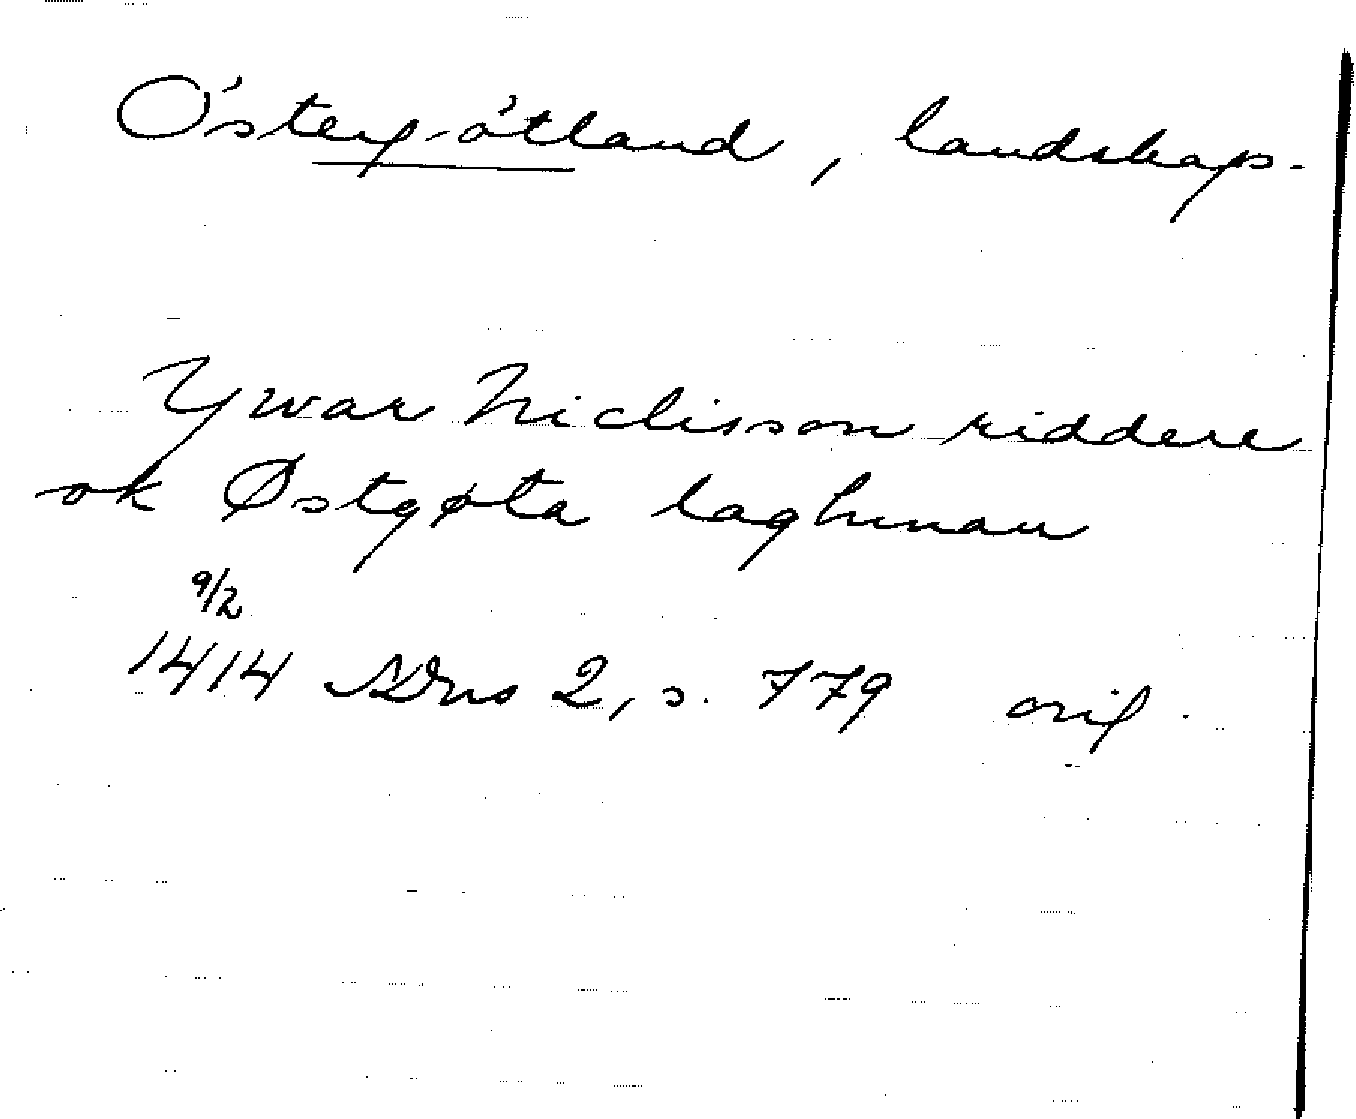 Östergötland, landskap.
Ywar Niclisson riddere
ok Østgøta laghman
9/2
1414 SDns 2, s. 779 orig.